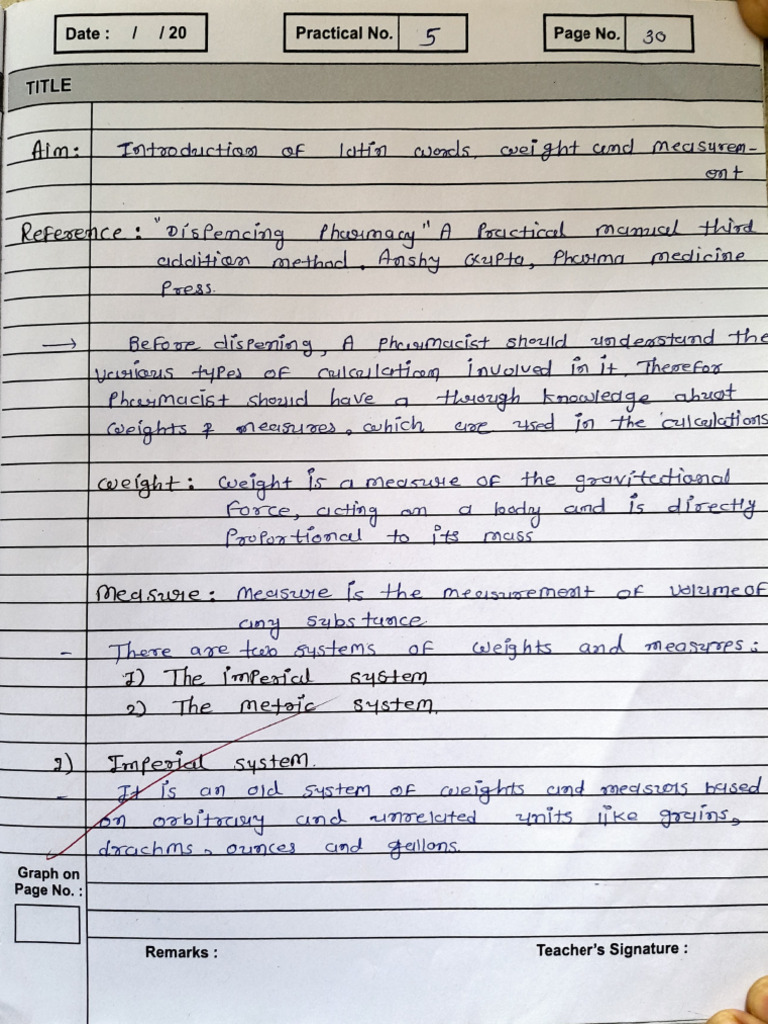 Date : / / 20 Practical No. 5 Page No. 30
TITLE
Aim: Introduction of latin words, weight and measurem-
ent
Reference : "Dispencing Pharmacy" A Practical manual third
addition method, Anshy Gupta, Pharma medicine
Press.
→ Before dispening, A pharmacist should understand the
various types of calculation involved in it. Therefor
Pharmacist should have a through knowledge about
weights & measures, which are used in the calculations
weight : weight is a measure of the gravitectional
force, acting on a body and is directly
Proportional to its mass
Measure : Measure is the measurement of volume of
any substance
- There are two systems of weights and measures :
1) The imperial system
2) The metric system.
1) Imperial system.
- It is an old system of weights and measurs based
on orbitrary and unrelated units like grains,
drachms, ounces and gallons.
Graph on
Page No. :
Remarks : Teacher's Signature :